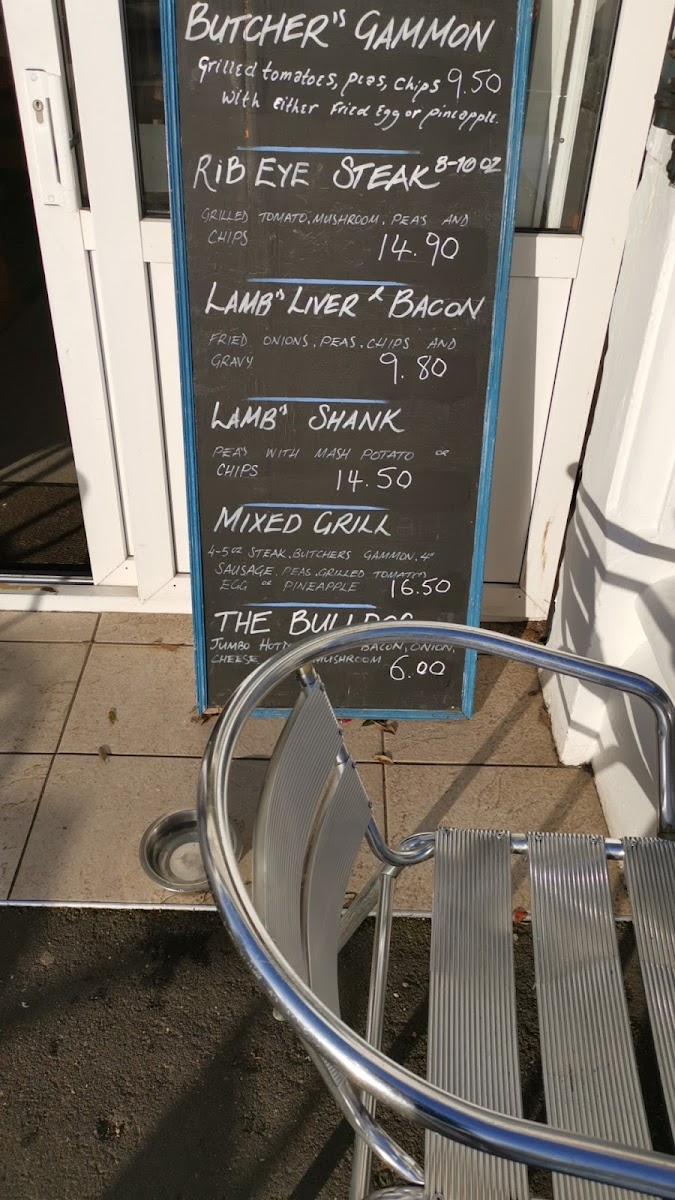 BUTCHER'S GAMMON
Grilled tomatoes, peas, chips 9.50
with either Fried Egg or pineapple.
RIB EYE STEAK 8-10 OZ
GRILLED TOMATO, MUSHROOM, PEAS AND
CHIPS 14.90
LAMB'S LIVER & BACON
FRIED ONIONS, PEAS, CHIPS AND
GRAVY 9.80
LAMB'S SHANK
PEAS WITH MASH POTATO OR
CHIPS 14.50
MIXED GRILL
4-5 OZ STEAK, BUTCHERS GAMMON, 4"
SAUSAGE, PEAS, GRILLED TOMATOES
EGG OR PINEAPPLE 16.50
THE BULLDOG
JUMBO BACON, ONION,
CHEESE MUSHROOM 6.00